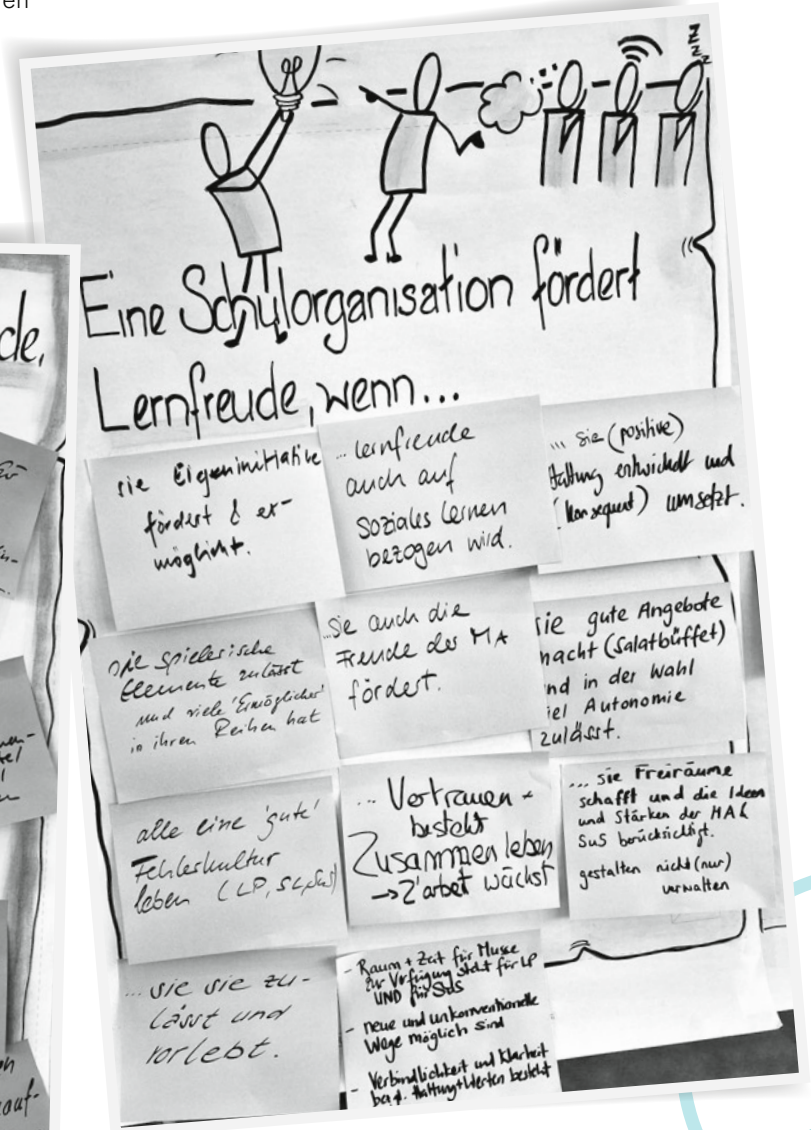 en
z
z
z
Eine Schulorganisation fördert
Lernfreude, wenn...
de,
sie Eigeninitiative
fördert & er-
möglicht.
... Lernfreude
auch auf
soziales Lernen
bezogen wird.
... sie (positive)
Haltung entwickelt und
(konsequent) umsetzt.
die spielerische
Elemente zulässt
und viele 'Ermöglicher'
in ihren Reihen hat
...sie auch die
Freude der MA
fördert.
sie gute Angebote
macht (Salatbüffet)
und in der Wahl
viel Autonomie
zulässt.
alle eine 'gute'
Fehlerkultur
leben (LP, SL, SuS)
... Vertrauen
besteht
Zusammenleben
→ Z'arbeit wächst
... sie Freiräume
schafft und die Ideen
und Stärken der MA &
SuS berücksichtigt.
gestalten nicht (nur)
verwalten
... sie sie zu-
lässt und
vorlebt.
- Raum + Zeit für Musse
zur Verfügung steht für LP
UND für SuS
- neue und unkonventionelle
Wege möglich sind
- Verbindlichkeit und Klarheit
bez. Haltung + Werten besteht
auf-